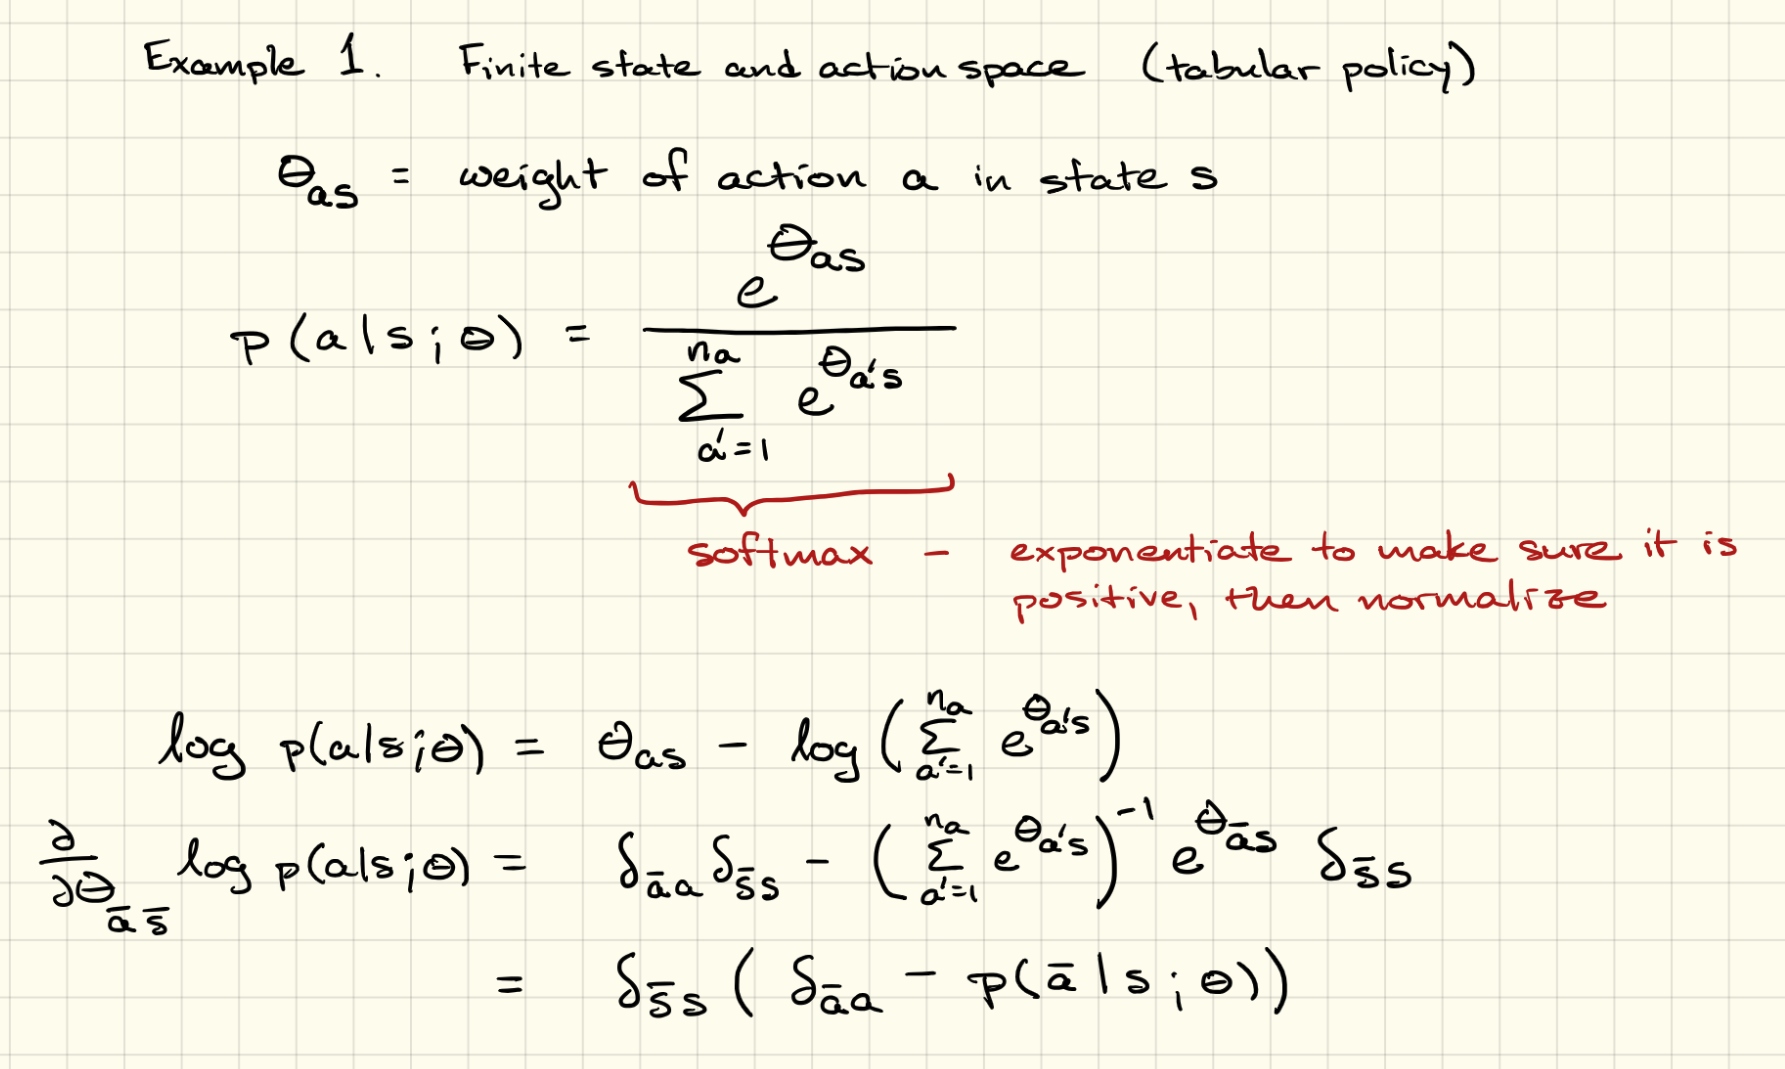 Example 1. Finite state and action space (tabular policy)
θ_as = weight of action a in state s
p(a|s;θ) = e^{θ_as} / Σ_{a'=1}^{n_a} e^{θ_a's}
softmax – exponentiate to make sure it is
positive, then normalize
log p(a|s;θ) = θ_as − log(Σ_{a'=1}^{n_a} e^{θ_a's})
∂/∂θ_{ās̄} log p(a|s;θ) = δ_{āa} δ_{s̄s} − (Σ_{a'=1}^{n_a} e^{θ_a's})^{-1} e^{θ_{ās}} δ_{s̄s}
= δ_{s̄s} (δ_{āa} − p(ā|s;θ))